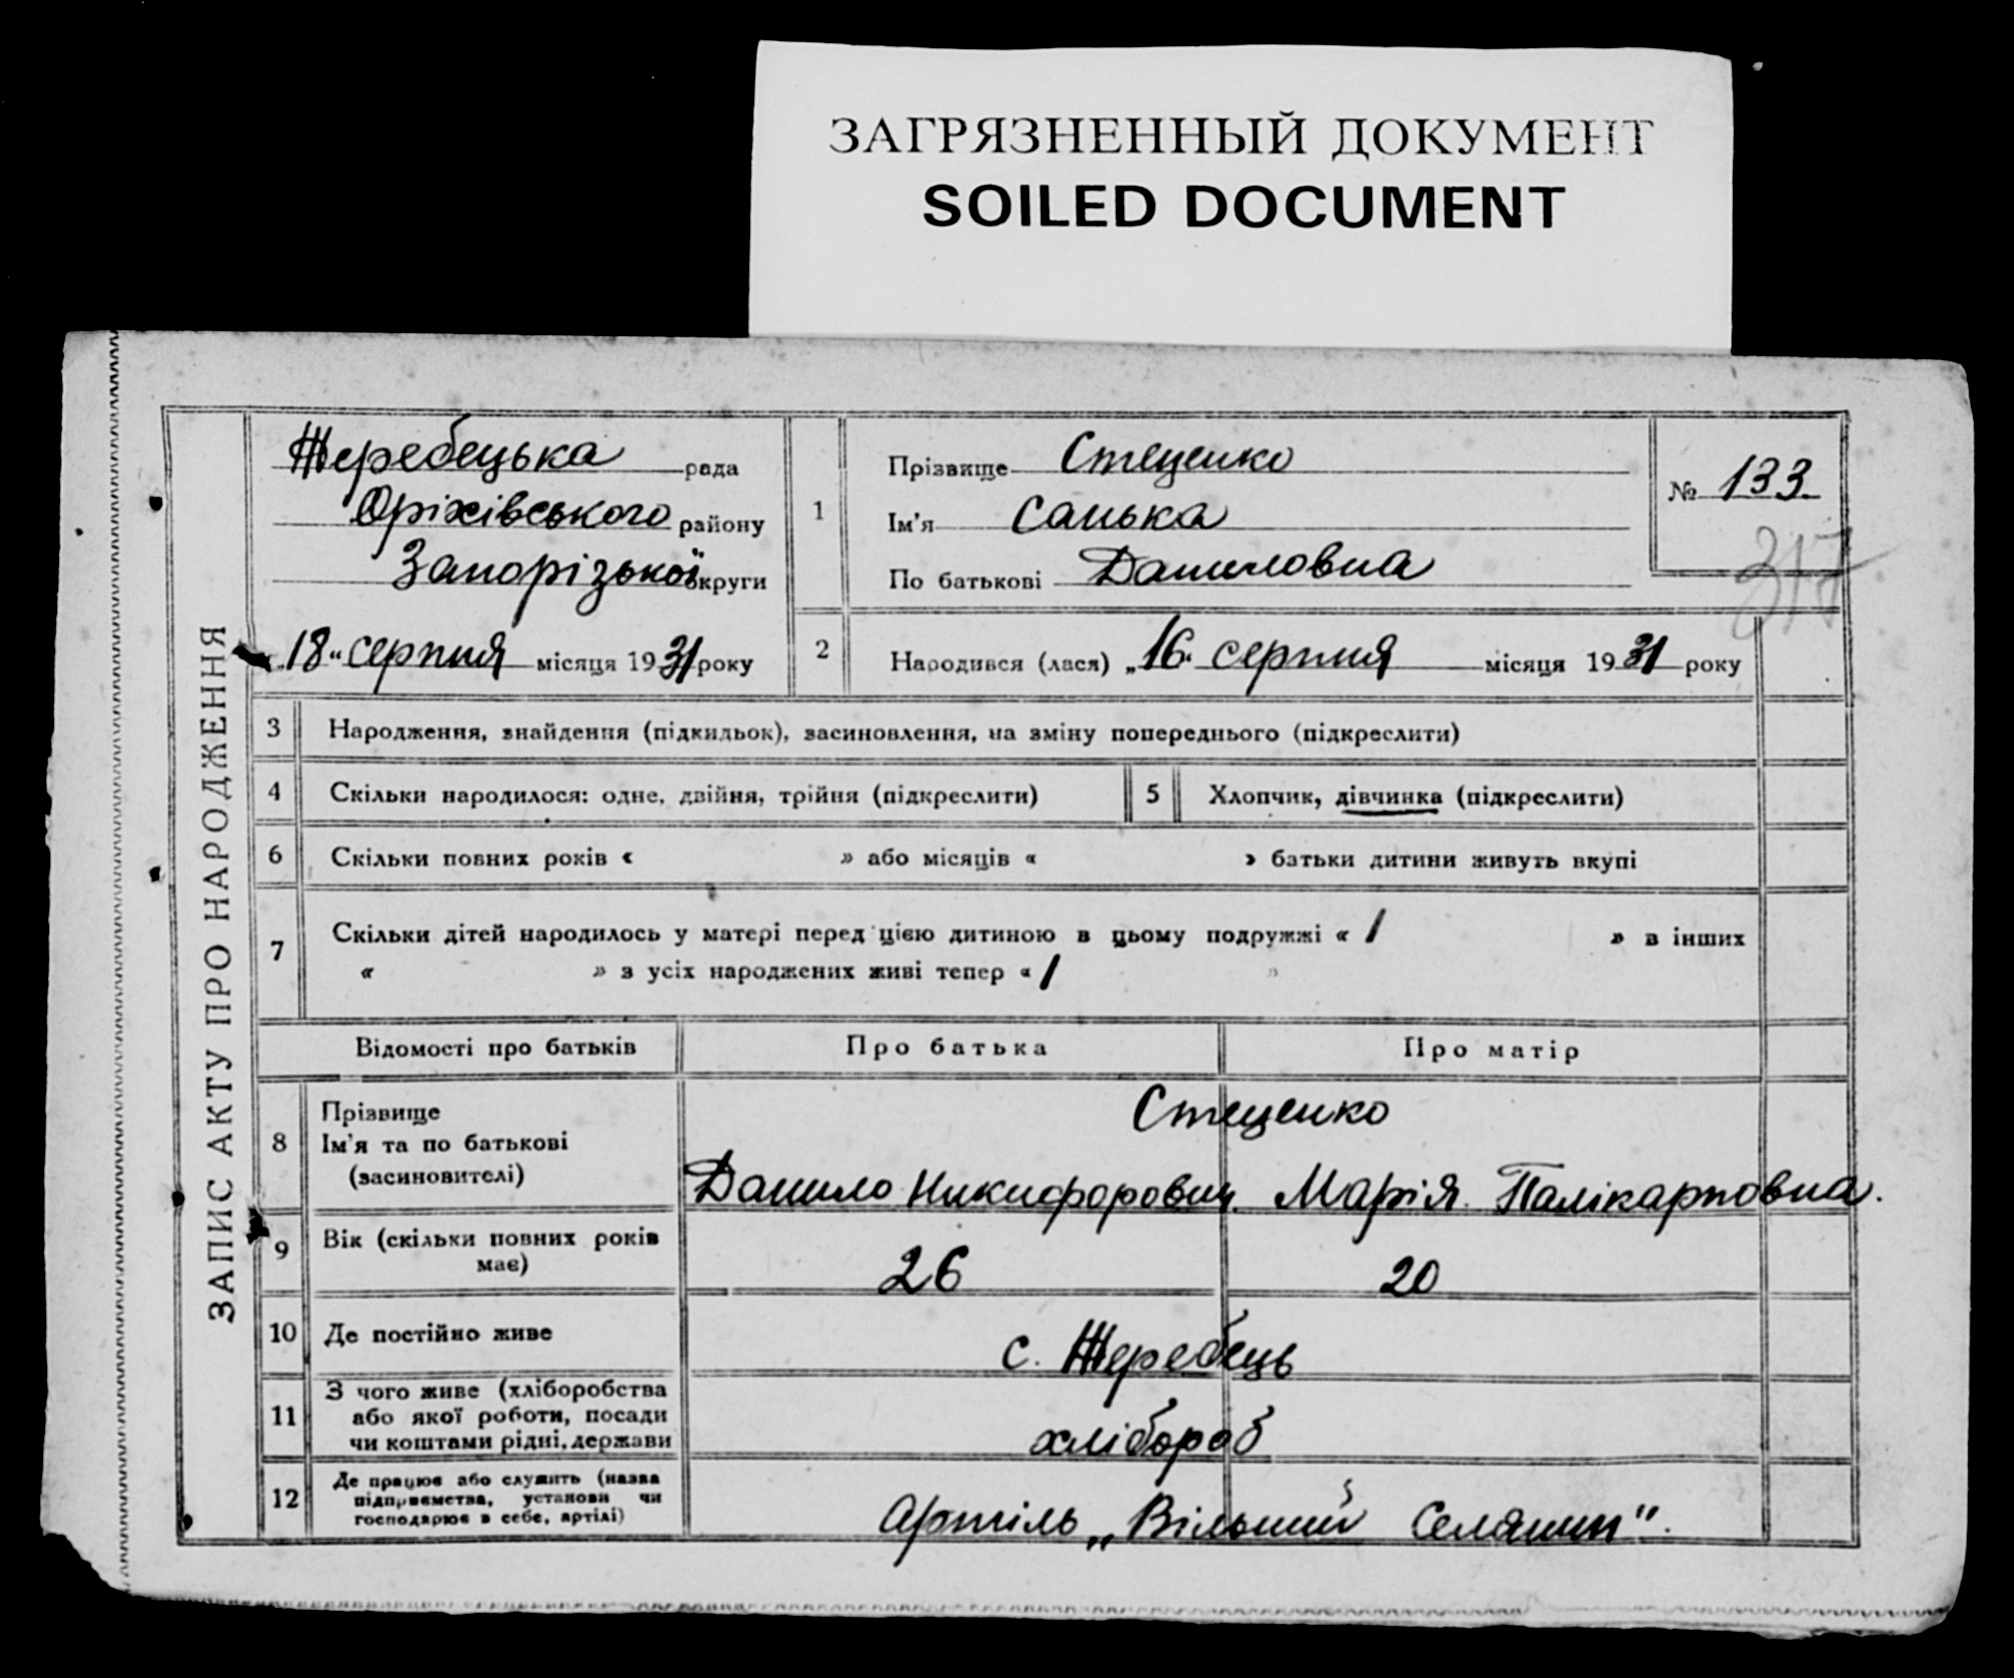 ЗАГРЯЗНЕННЫЙ ДОКУМЕНТ
SOILED DOCUMENT
ЗАПИС АКТУ ПРО НАРОДЖЕННЯ
Жеребецька рада
Оріхівського району
Запорізької округи
18" серпня місяця 1931 року
1
Прізвище Стеценко
Ім'я Санька
По батькові Даниловна
№ 133
317
2 Народився (лася) „16" серпня місяця 1931 року
3 Народження, знайдення (підкидьок), засиновлення, на зміну попереднього (підкреслити)
4 Скільки народилося: одне, двійня, трійня (підкреслити) 5 Хлопчик, дівчинка (підкреслити)
6 Скільки повних років « » або місяців « » батьки дитини живуть вкупі
7 Скільки дітей народилось у матері перед цією дитиною в цьому подружжі « 1 » в інших
« » з усіх народжених живі тепер « 1 »
Відомості про батьків Про батька Про матір
8 Прізвище
Ім'я та по батькові
(засиновителі)
Стеценко
Данило Никифорович. Марія Палікарповна.
9 Вік (скільки повних років
має)
26 20
10 Де постійно живе с. Жеребець
11 З чого живе (хліборобства
або якої роботи, посади
чи коштами рідні, держави
хлібороб
12 Де працює або служить (назва
підприємства, установи чи
господарює в себе, артілі)
Артіль „Вільний Селянин".